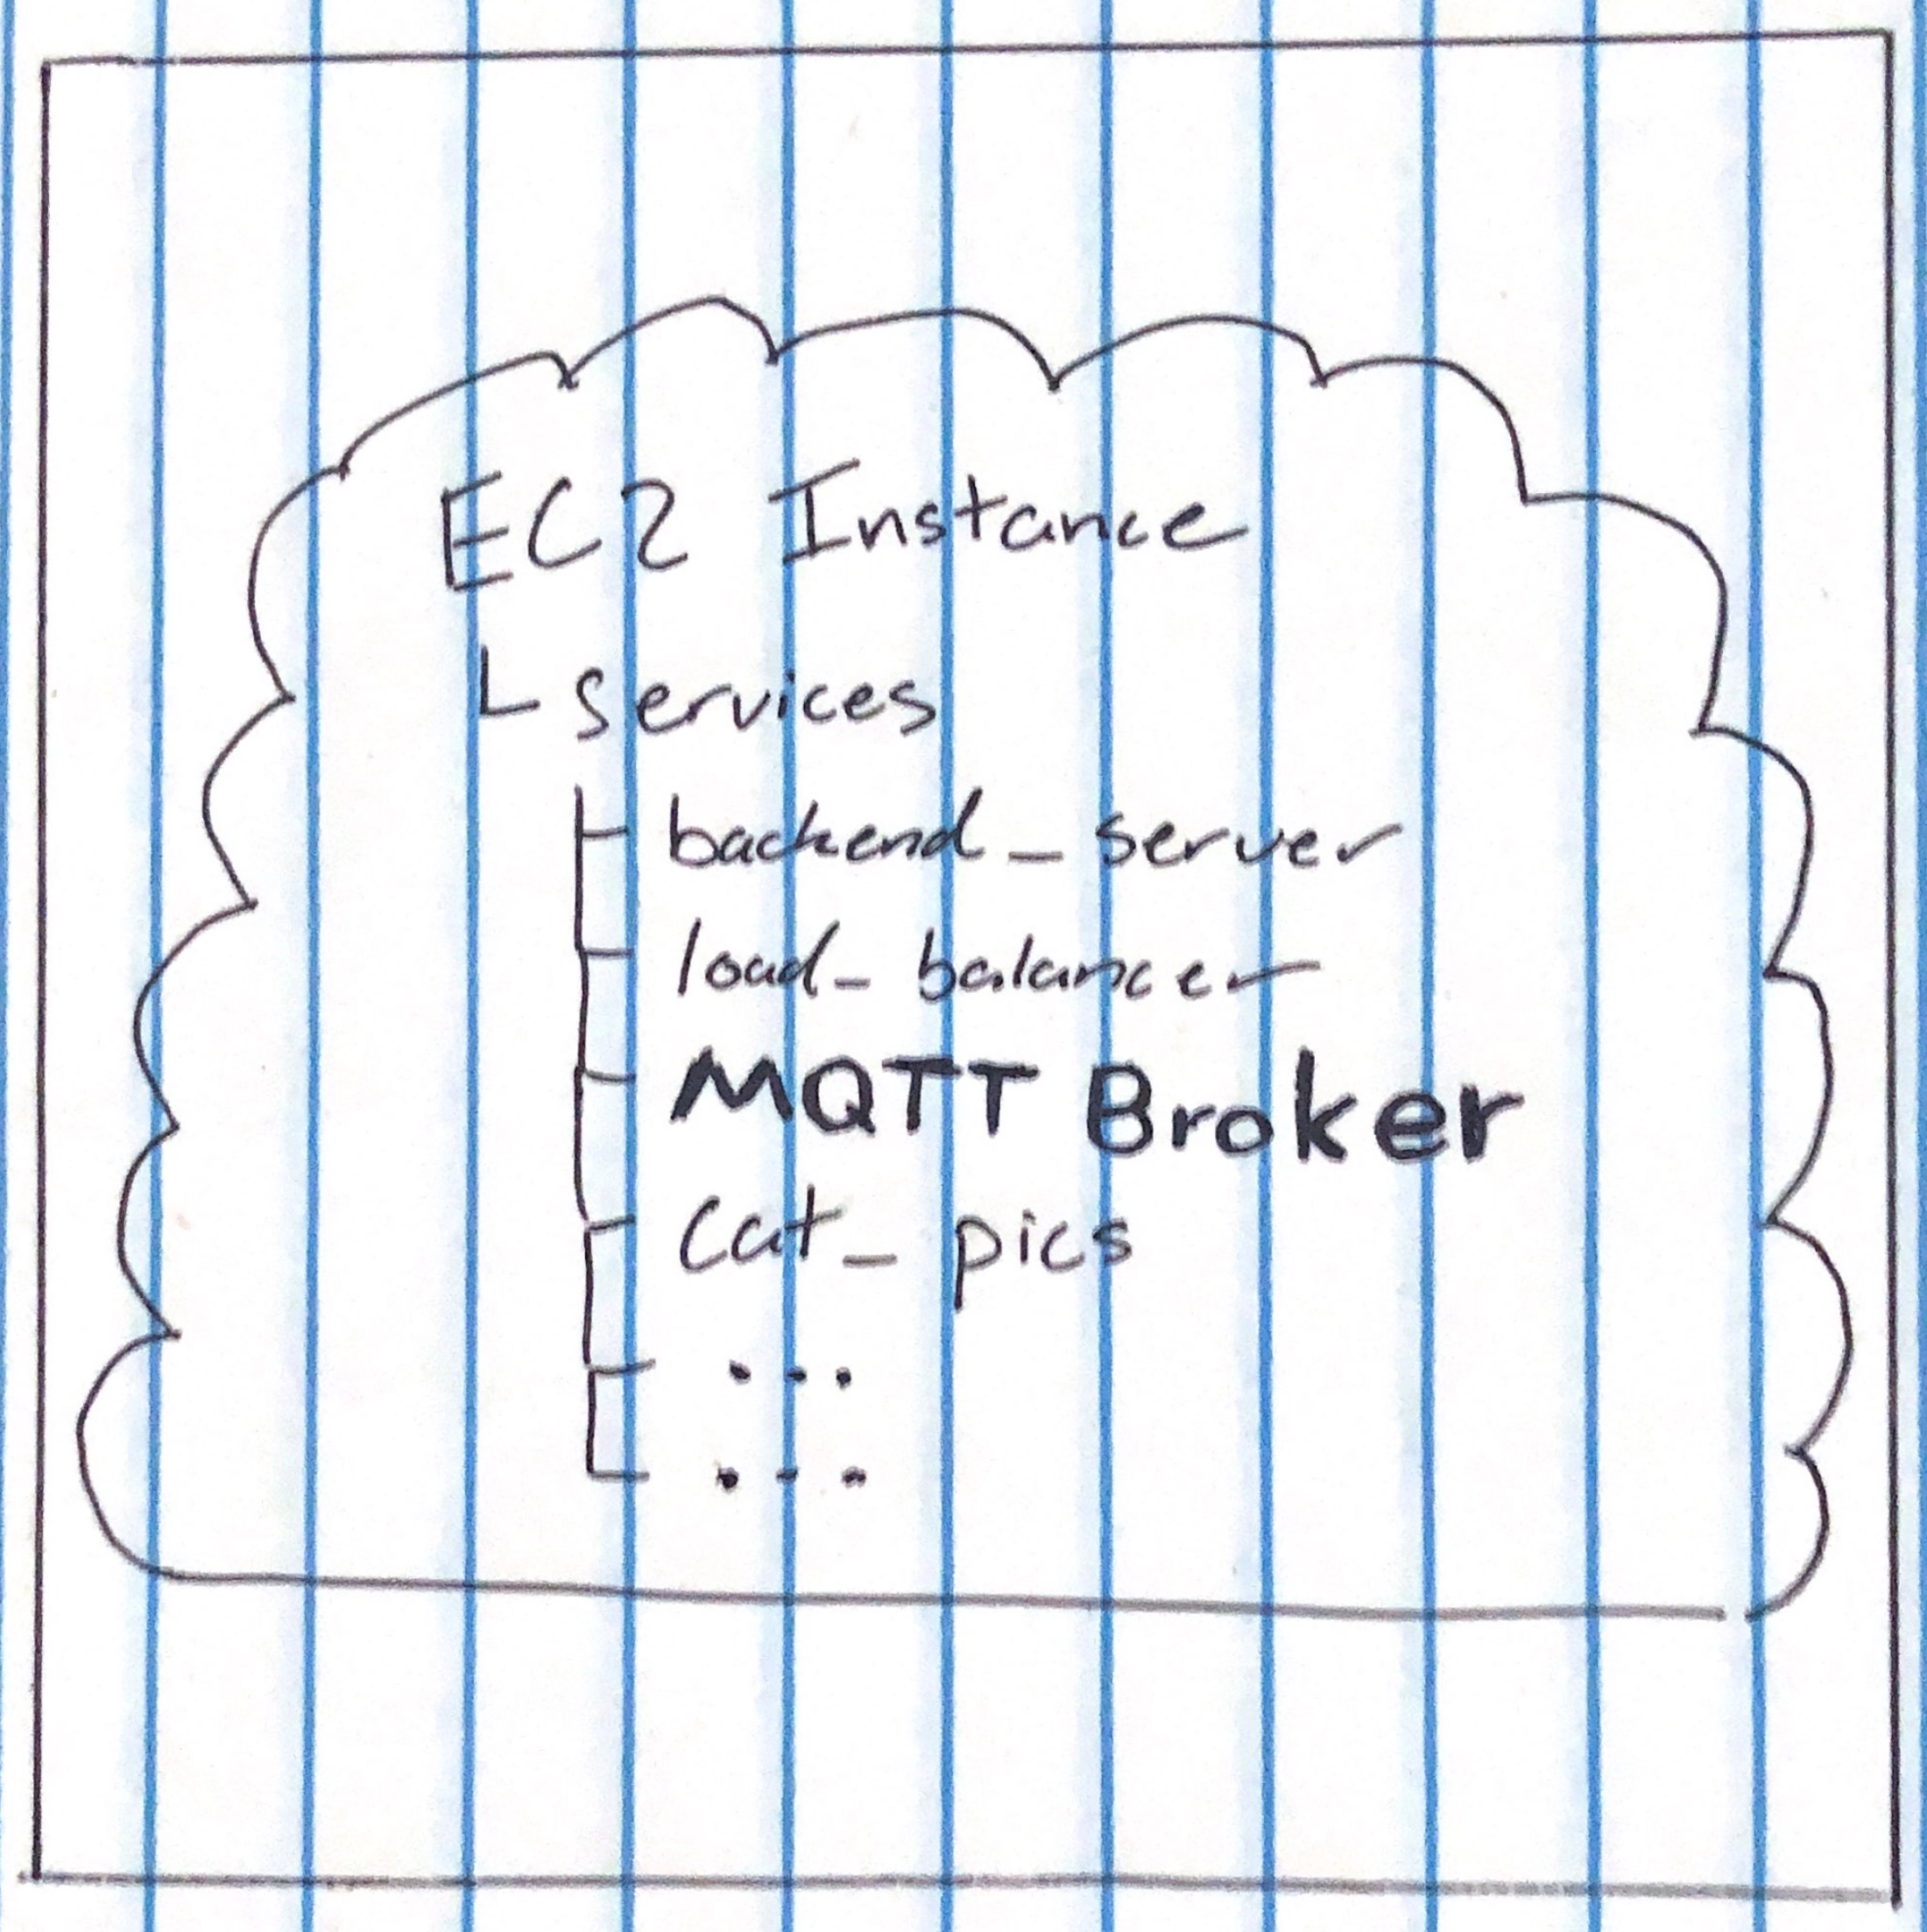 EC2 Instance
services
backend_server
load_balancer
MQTT Broker
cat_pics
...
...